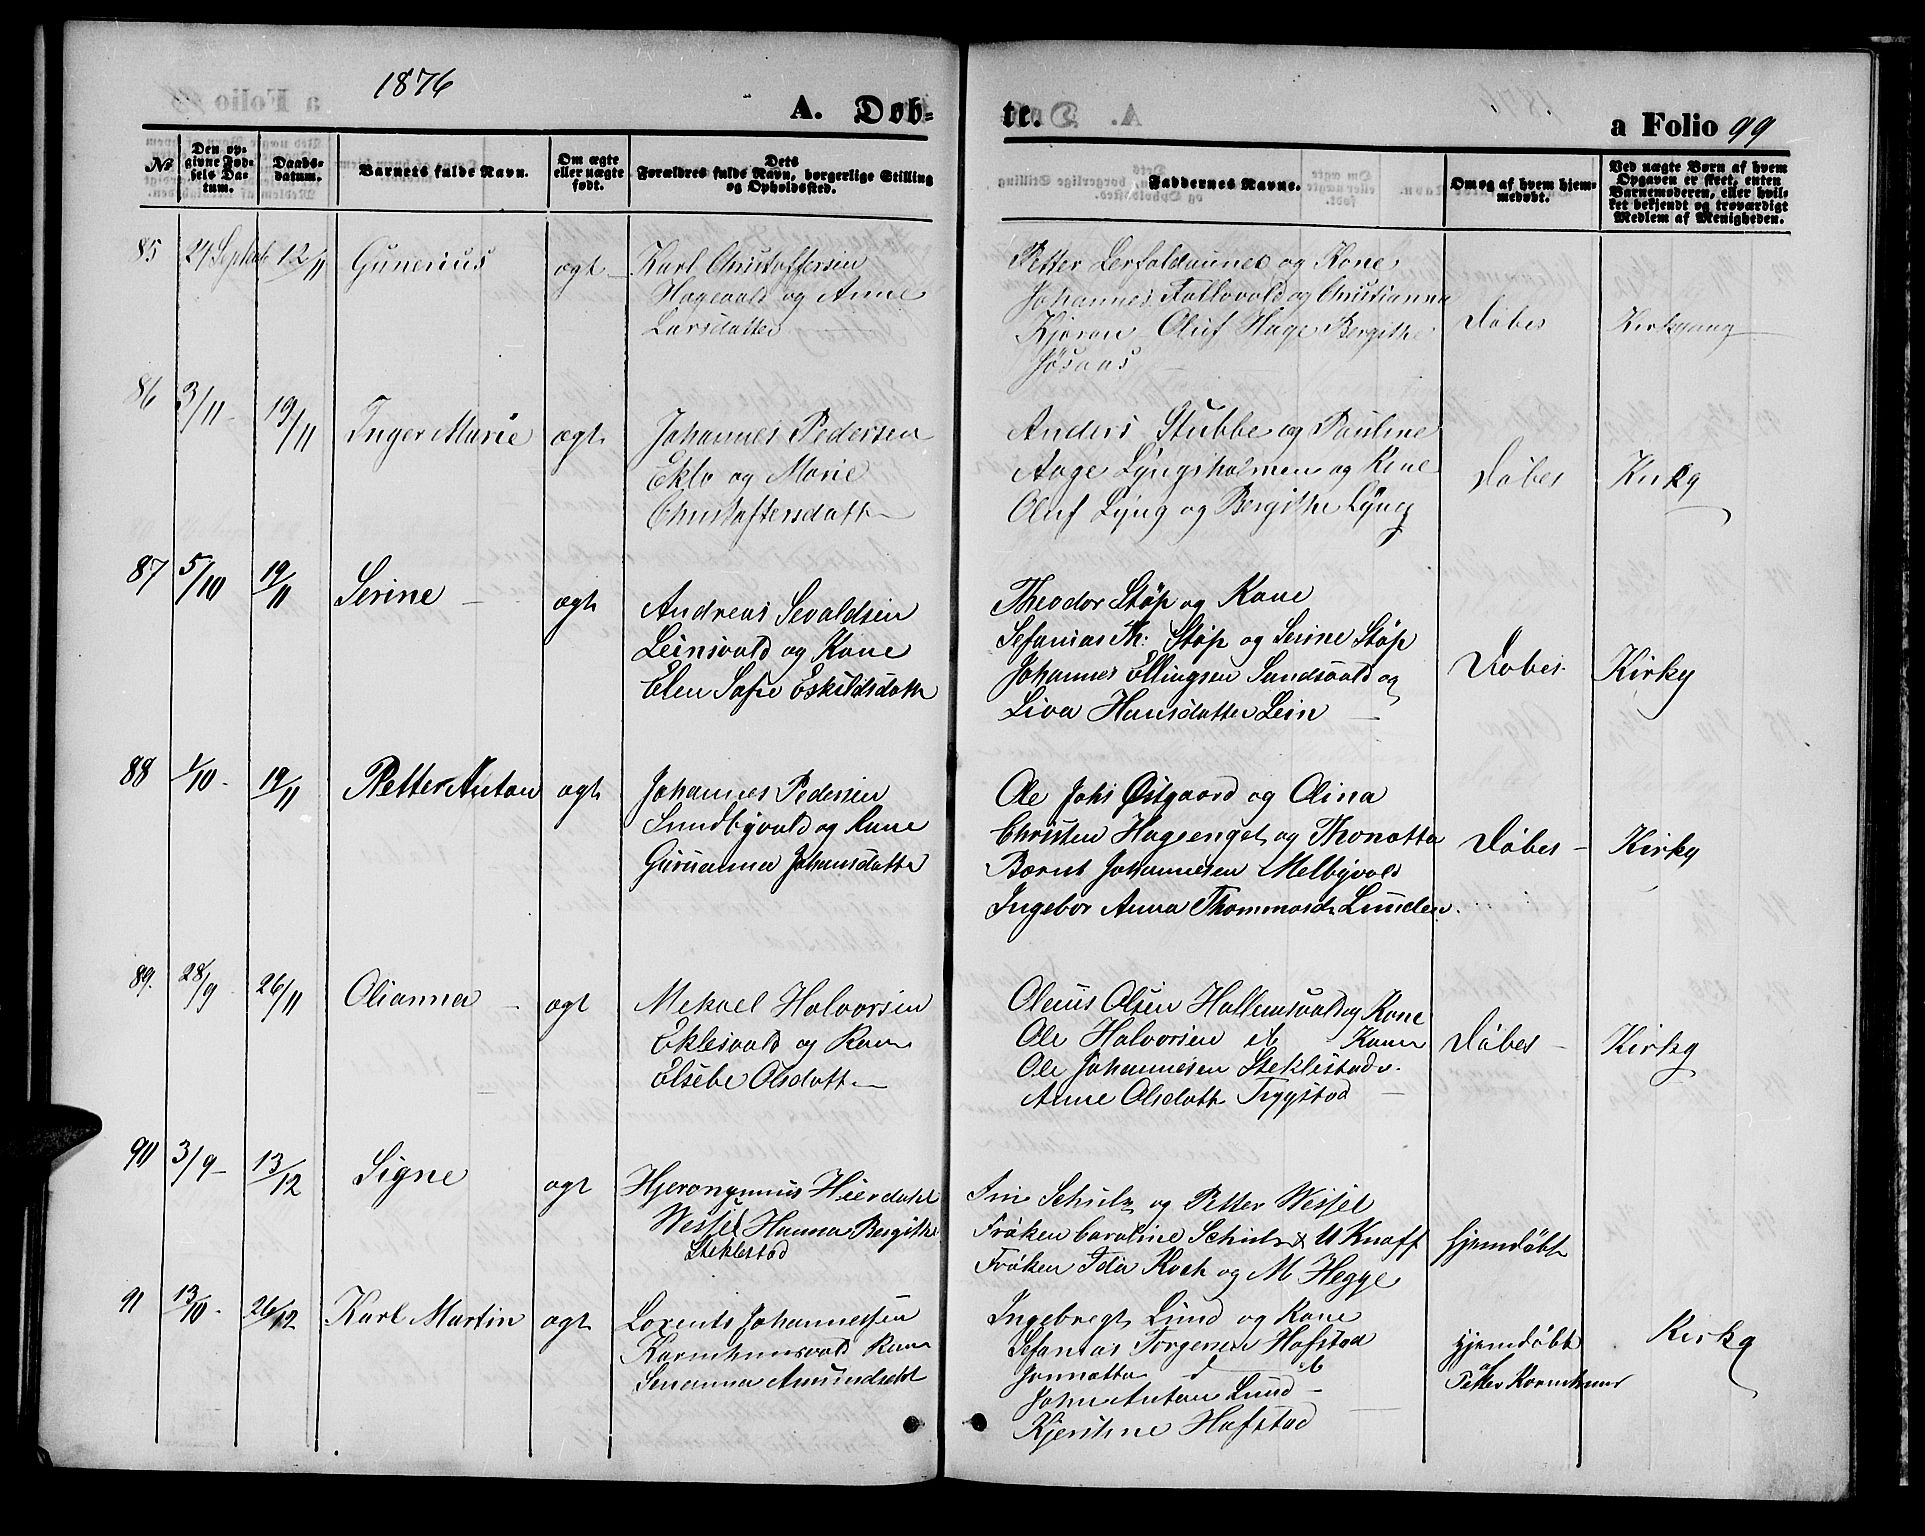 1876
A. Døb-
te.
a Folio 99
No.
Den op-
givne Fød-
sels Da-
tum.
Daabs-
datum.
Barnets fulde Navn.
Om ægte
eller uægte
født.
Dets
Forældres fulde Navn, borgerlige Stilling
og Opholdssted.
Faddernes Navne.
Om og af hvem hjem-
medøbt.
Ved uægte Børn af hvem
Opgaven er skeet, enten
Barnemoderen, eller hvil-
ket bekjendt og troværdigt
Medlem af Menigheden.
85 24 Septemb 12/11 Gunerius ægt Karl Christoffersen
Hagevald og Anne
Larsdatter
Petter og Kone
Johannes og Christianna
Oluf Hage Bergithe
Jøsaas
Døbes
Kirkgang
86 3/11 19/11 Inger Marie ægt Johannes Pedersen
Eklo og Marie
Christoffersdatt
Anders Stubbe og Pauline
Aage Lyngsholmen og Kone
Oluf Lyng og Bergithe Lyng
Døbes
Kirkg
87 5/10 19/11 Serine ægt Andreas Sevaldsen
Leinsvald og Kone
Elen Sofie Eskildsdatt
Theodor Støp og Kone
Sefanias Th. Støp og Serine Støp
Johannes Ellingsen Sundsvald og
Liva Hansdatter Lein
Døbes
Kirkg
88 1/10 19/11 Petter Anton ægt Johannes Pedersen
Sundbyvald og Kone
Guruanna Johansdatt
Ole Johs Østgaard og Olina
Christen Hagsenget og Thonetta
Bernt Johannesen Melbyvald
Ingebor Anna Thommasd Lunden
Døbes
Kirkg
89. 28/9 26/11 Olianna ægt Mekael Halvorsen
Eklesvald og Kone
Elsebe Olsdatt
Olaus Olsen Hallemsvald og Kone
Ole Halvorsen Kone
Ole Johannesen Steklestad
Anne Olsdatt Tryystad
Døbes
Kirkg
90 3/9 13/12 Signe ægt Hjeronymus Heierdahl
Wessel Hanna Bergithe
Steklestad
Schulz og Petter Wessel
Frøken Caroline Schulz & U Knoff
Frøken Ida Koch og M Hegge
Hjemdøbt
91 13/10 26/12 Karl Martin ægt Lorents Johannessen
Karmhusvald Kone
Amundsdt
Ingebregt Lund og Kone
Sefanias Torgersen Hafstad
Jonnetta d
John Antan Lund
Kjerstine Hafstad
Hjemdøbt
af
Petter
Kirkg